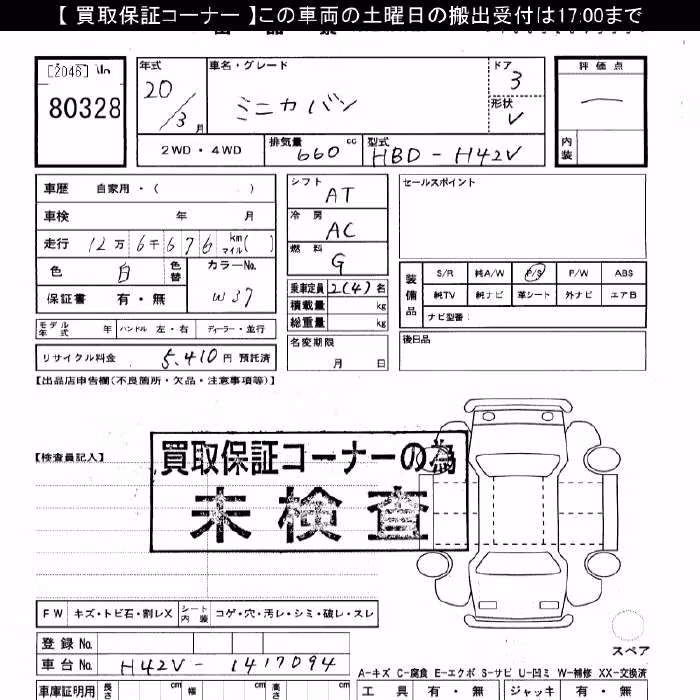 【 買取保証コーナー 】この車両の土曜日の搬出受付は17:00まで
[2046]
80328
年式 20/3 月
車名・グレード ミニカバン
ドア 3
形状 V
評価点 一
内装
2WD・4WD
排気量 660 cc
型式 HBD-H42V
車歴 自家用・( )
車検 年 月
走行 12万 6千 676 km マイル( )
色 白 色替
カラーNo. W37
保証書 有・無
シフト AT
冷房 AC
燃料 G
乗車定員 2(4)名
積載量 kg
総重量 kg
セールスポイント
装備品
S/R 純A/W P/S P/W ABS
純TV 純ナビ 革シート 外ナビ エアB
ナビ型番:
モデル年式 年 ハンドル 左・右 ディーラー・並行
リサイクル料金 5,410 円 預託済
名変期限 月 日
後日品
【出品店申告欄(不良箇所・欠品・注意事項等)】
【検査員記入】
買取保証コーナーの為
未検査
FW キズ・トビ石・割レX シート内装 コゲ・穴・汚レ・シミ・破レ・スレ
スペア
登録 No.
車台 No. H42V-1417094
A-キズ C-腐食 E-エクボ S-サビ U-凹ミ W-補修 XX-交換済
車庫証明用 長さ cm 幅 cm 高さ cm
工具 有・無 ジャッキ 有・無